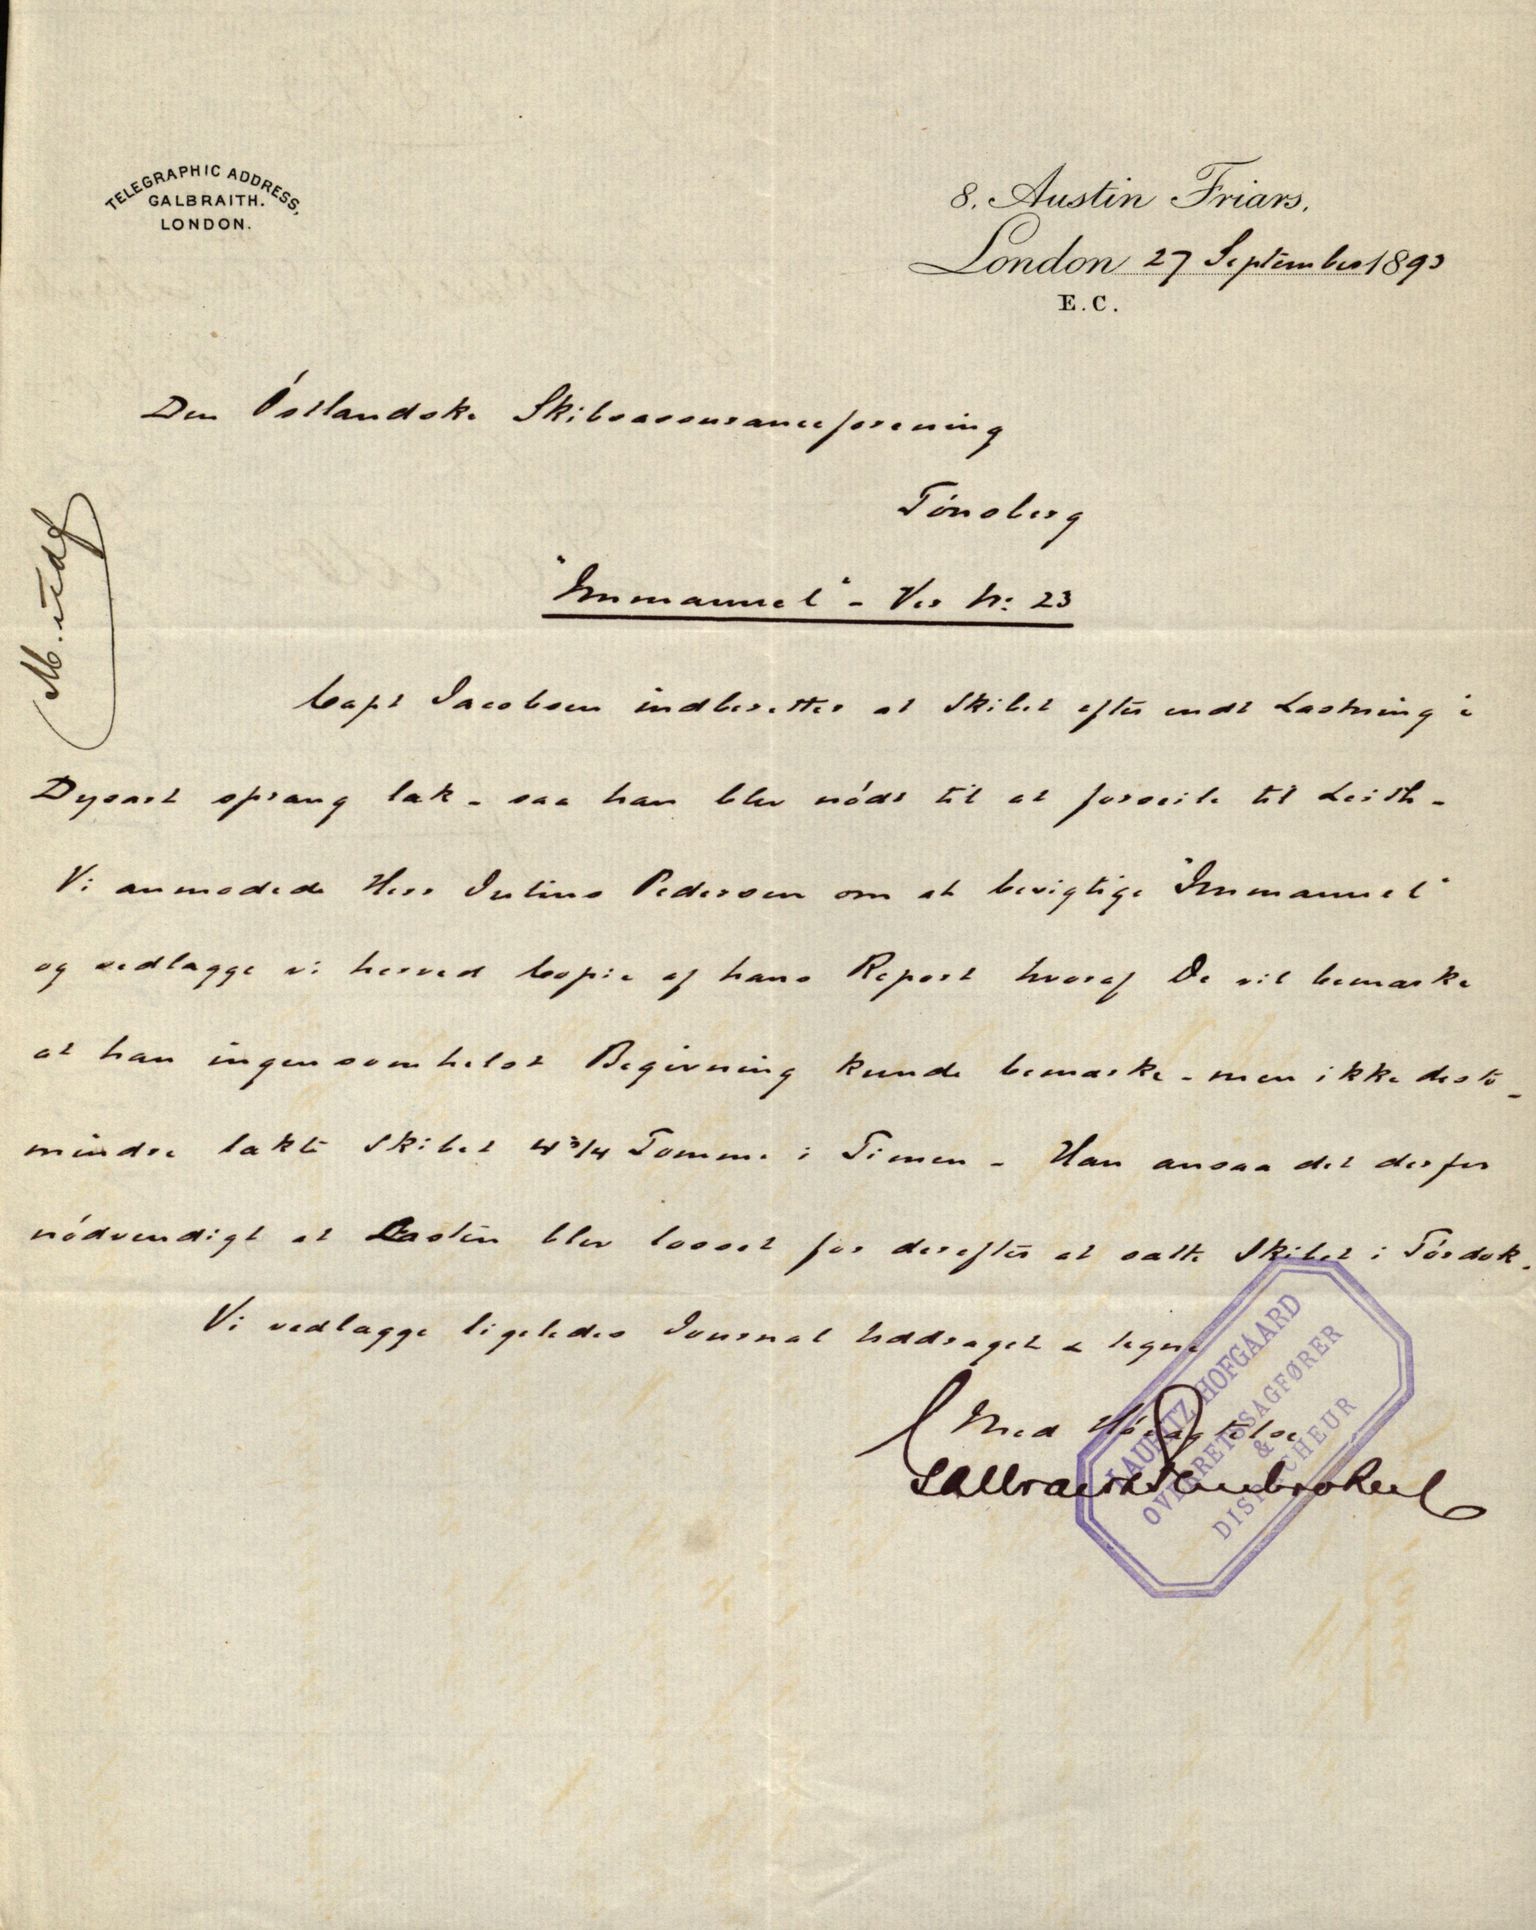 TELEGRAPHIC ADDRESS,
GALBRAITH.
LONDON.
8, Austin Friars,
London 27 September 1893
E.C.
Den Östlandske Skibsassuranceforening
Tönsberg
"Immanuel" - Ver No: 23
Capt Jacobsen indberetter at Skibet efter endt Lastning i
Dysart sprang læk - saa han blev nödt til at forseile til Leith -
Vi anmodede Herr Julius Pedersen om at besigtige "Immanuel"
og vedlægge vi herved Copie af hans Report hvoraf De vil bemærke
at han ingensomhelst Begivning kunde bemærke - men ikke desto-
mindre lækte Skibet 4 3/4 Tomme i Timen - Han ansaa det derfor
nödvendigt at Lasten blev losset for derefter at sætte Skibet i Tördok.
Vi vedlægge ligeledes Journal Uddraget & tegne
Med Höiagtelse
Galbraith Pembroke & Co
LAURITZ HOFGAARD
OVERRETSSAGFØRER
&
DISPACHEUR